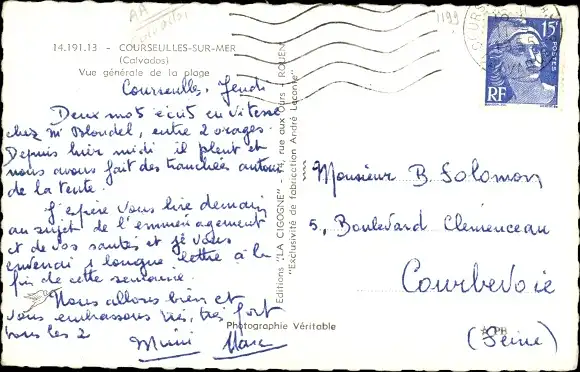 14.191.13 - COURSEULLES-SUR-MER
(Calvados)
Vue générale de la plage
Courseulles, Jeudi
Deux mots écrits en vitesse
chez Mr Blondel, entre 2 orages.
Depuis hier midi il pleut et
nous avons fait des tranchées autour
de la tente.
J'espère vous lire demain
au sujet de l'emménagement
et de vos santés et je vous
enverrai 1 longue lettre à la
fin de cette semaine.
Nous allons bien et
vous embrassons très, très fort
tous les 2
Mimi Marc
Editions "LA CIGOGNE" - 74, rue aux Ours - ROUEN
"Exclusivité de fabrication André Leconte"
Photographie Véritable
1199
15F
POSTES
RF
Monsieur B. Solomon
5, Boulevard Clémenceau
Courbevoie
(Seine)